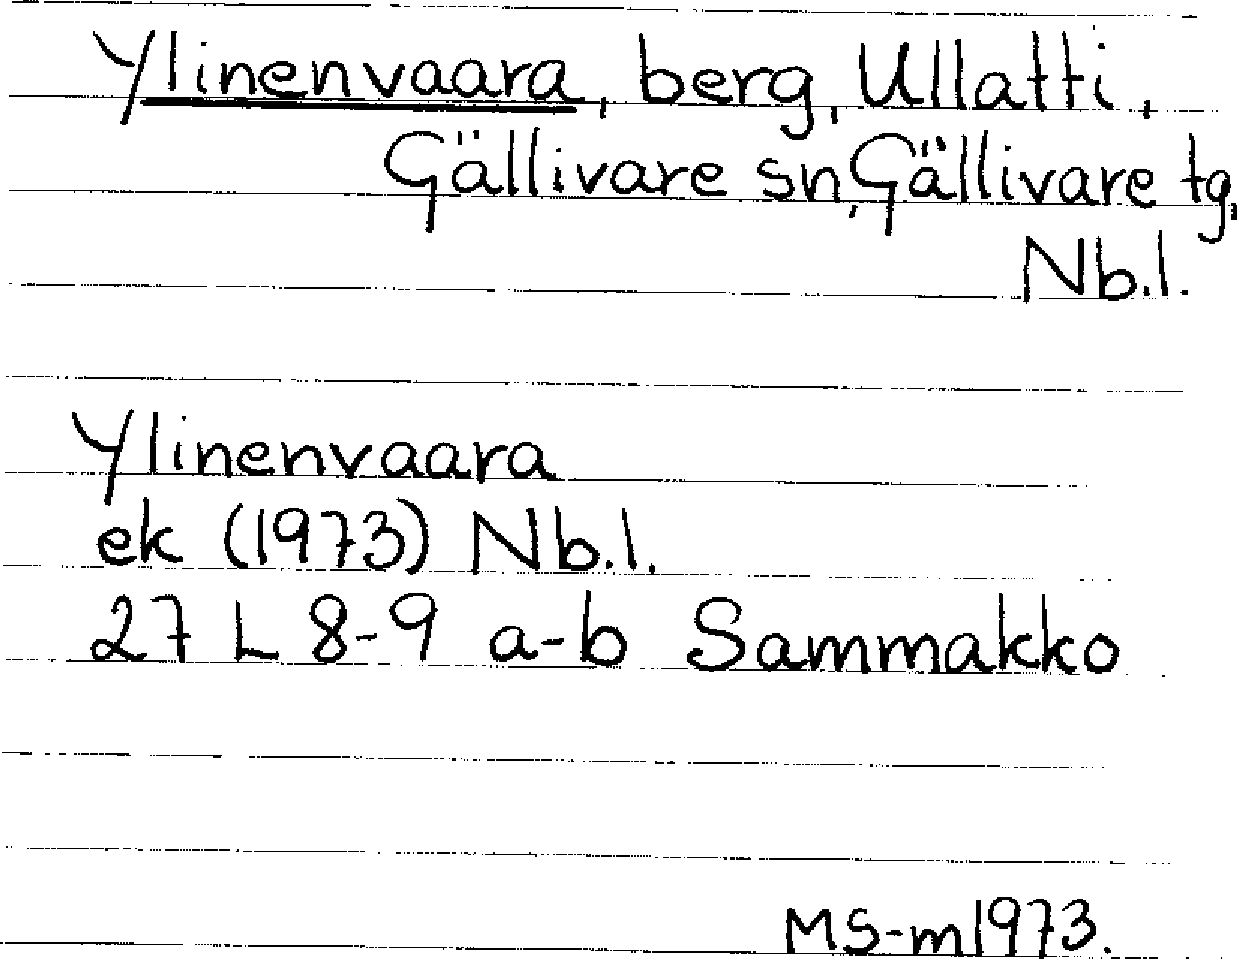 Ylinenvaara, berg, Ullatti,
Gällivare sn, Gällivare tg,
Nb.l.
Ylinenvaara
ek (1973) Nb.l.
27 L 8-9 a-b Sammakko
MS-m1973.